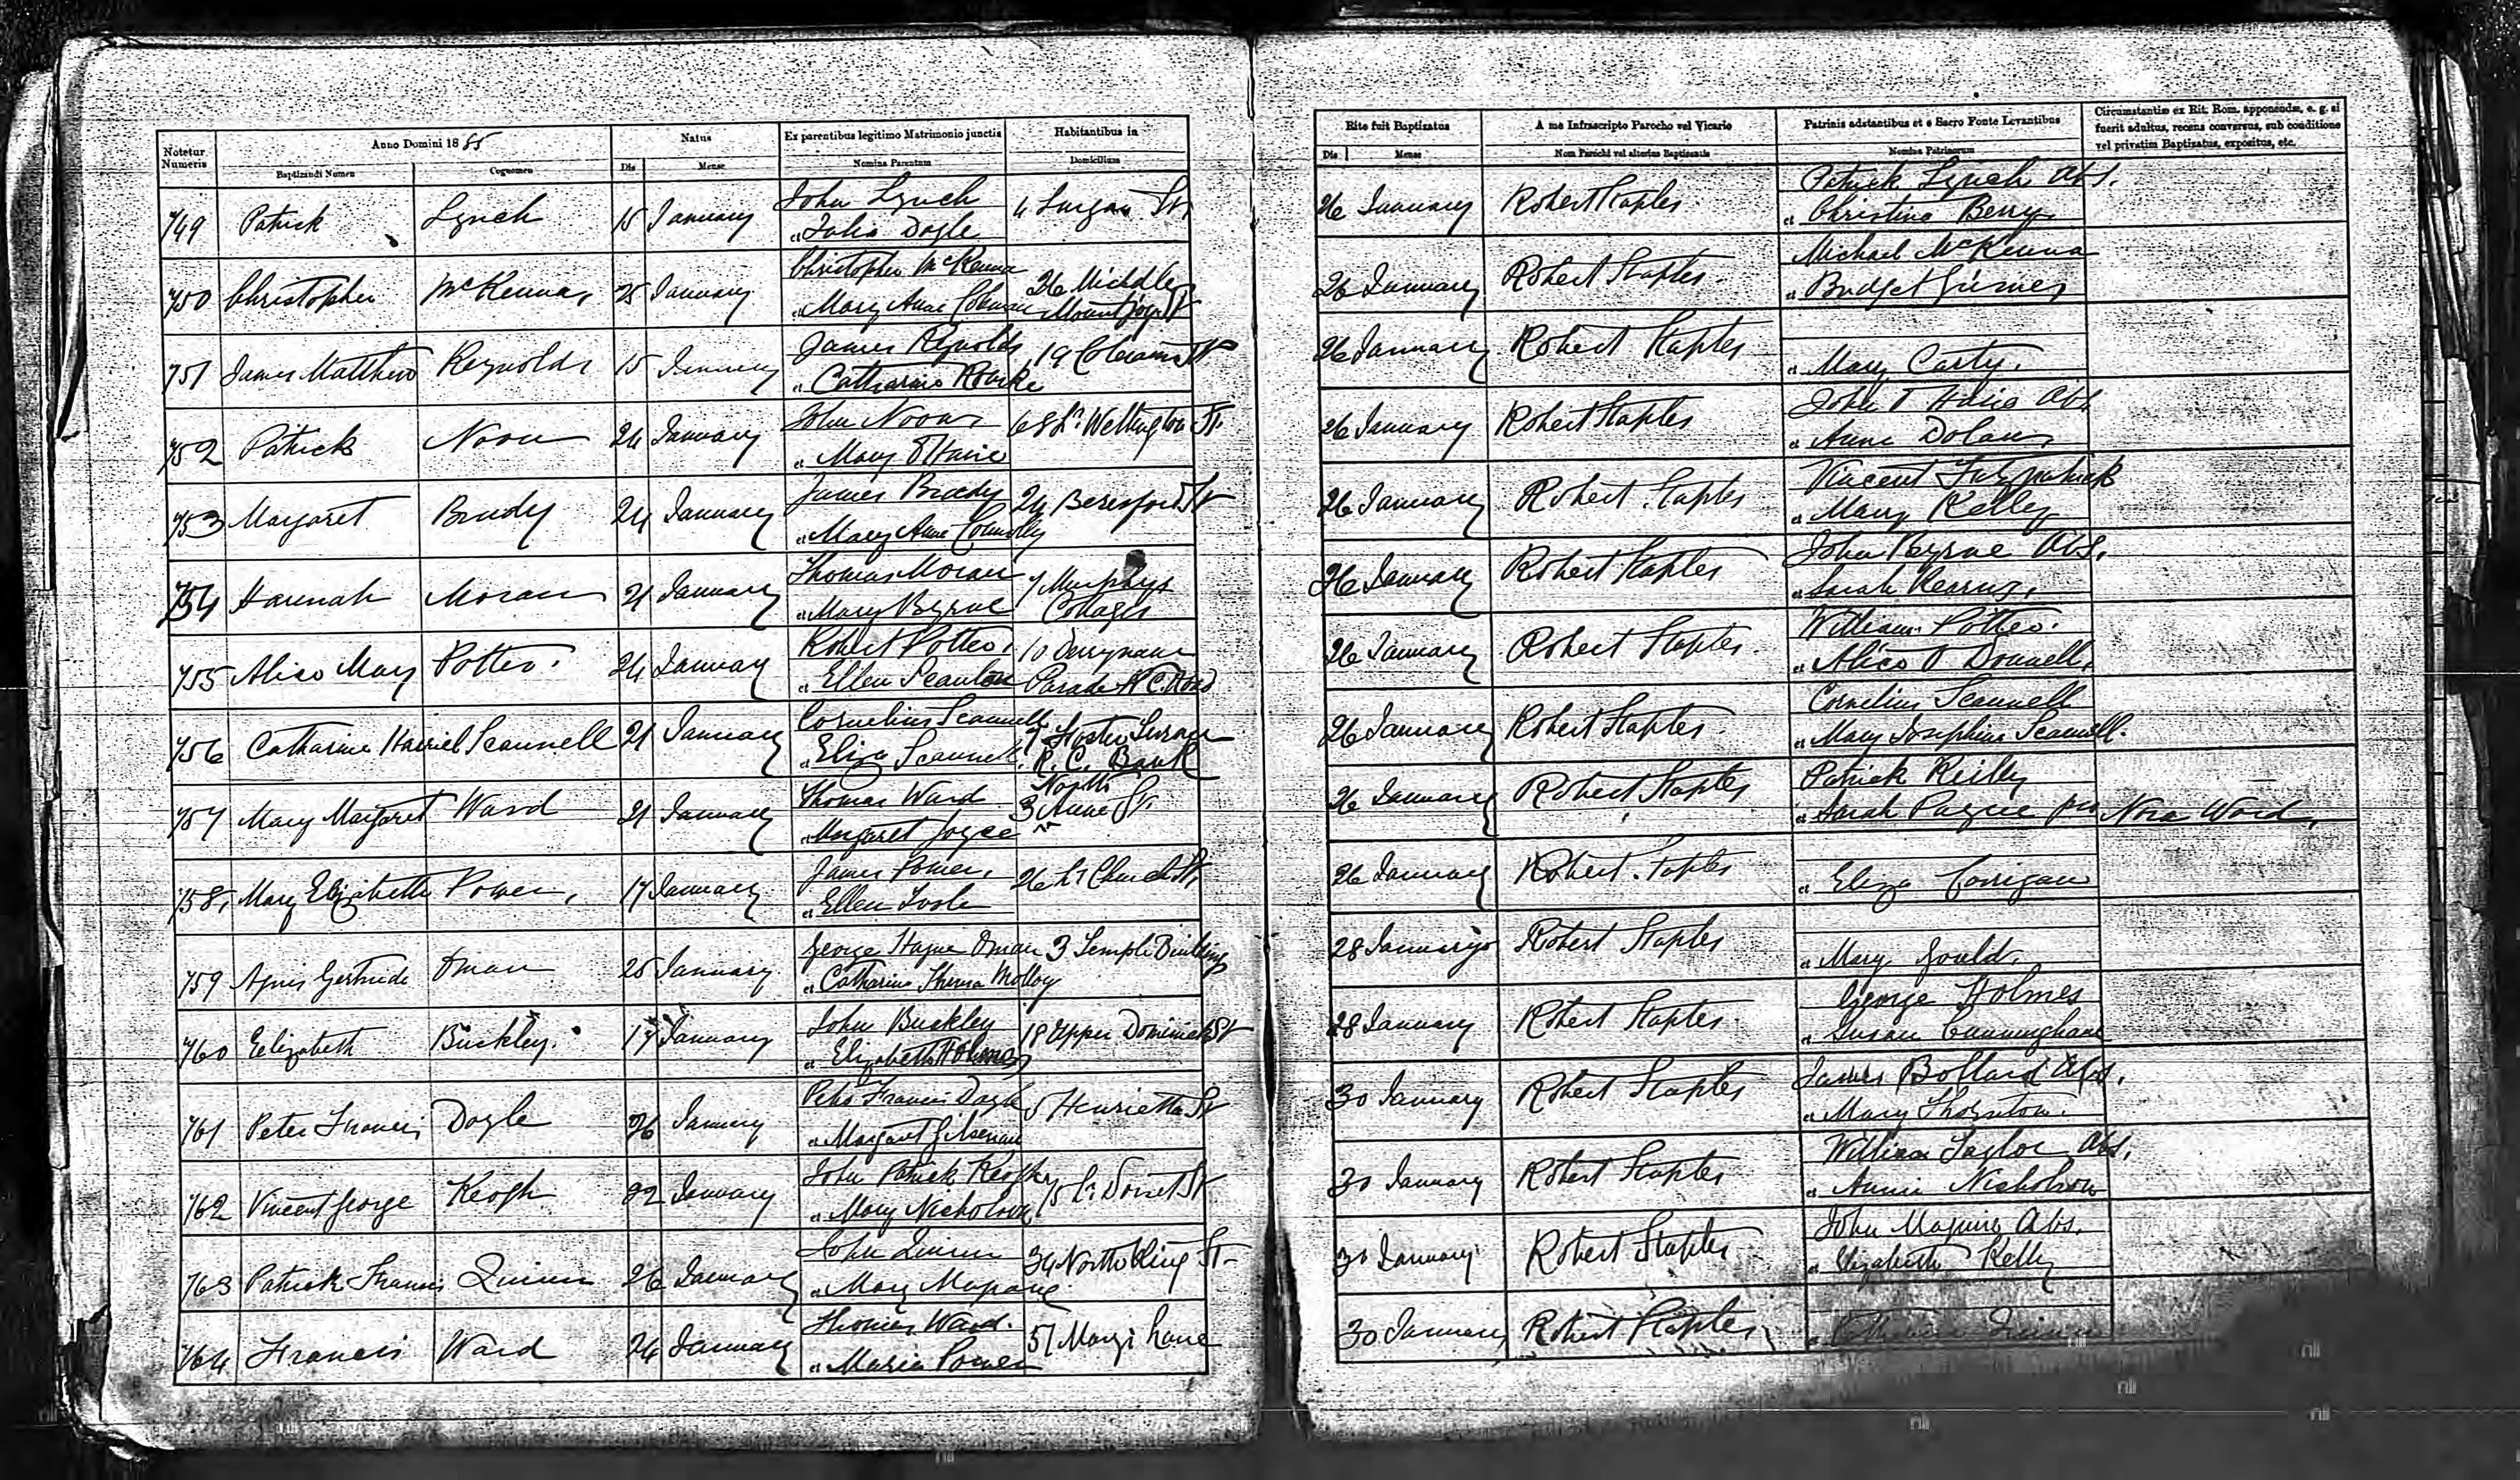 Notetur Numeris
Anno Domini 1885
Baptizandi Nomen
Cognomen
Natus
Die
Mense
Ex parentibus legitimo Matrimonio junctis
Nomina Parentum
Habitantibus in
Domicilium
749 Patrick Lynch 15 January John Lynch 4 Lurgan St.
et Julia Doyle
750 Christopher McKenna 25 January Christopher McKenna 26 Middle
et Mary Anne Mountjoy St
751 James Matthew Reynolds 15 January James Reynolds 19 Coleraine St
et Catharine Rourke
752 Patrick Noon 24 January John Noon 68 Lr. Wellington St.
et Mary O'Haire
753 Margaret Brady 24 January James Brady 24 Beresford St
et Mary Anne Connolly
754 Hannah Moran 21 January Thomas Moran 7 Murphys
et Mary Byrne Cottages
755 Alice Mary Potter 24 January Robert Potter 10 Derrynane
et Ellen Scanlan Parade N C. Road
756 Catharine Harriet Scannell 21 January Cornelius Scannell 7 Foster Terrace
et Eliza Scannell R. C. Bank
757 Mary Margaret Ward 21 January Thomas Ward 3 North Anne St.
et Margaret Joyce
758 Mary Elizabeth Power 17 January James Power 26 Lr Church St.
et Ellen Toole
759 Agnes Gertrude Oman 25 January George Hague Oman 3 Temple Buildings
et Catharine Theresa Molloy
760 Elizabeth Buckley 17 January John Buckley 18 Upper Dominick St
et Elizabeth Holmes
761 Peter Francis Doyle 26 January Peter Francis Doyle 5 Henrietta St
et Margaret Gilsenan
762 Vincent George Keogh 22 January John Patrick Keogh 75 Lr. Dorset St
et Mary Nicholson
763 Patrick Francis Quinn 26 January John Quinn 34 North King St
et Mary
764 Francis Ward 24 January Thomas Ward 57 Mary's Lane
et Maria Power
Rite fuit Baptizatus
Die
Mense
A me Infrascripto Parocho vel Vicario
Nom Parochi vel alterius Baptizantis
Patrinis adstantibus et e Sacro Fonte Levantibus
Nomina Patrinorum
Circumstantiæ ex Rit. Rom. apponendæ, e. g. si
fuerit adultus, recens conversus, sub conditione
vel privatim Baptizatus, expositus, etc.
26 January Robert Staples Patrick Lynch Abs.
et Christina Berry
26 January Robert Staples Michael McKenna
et Bridget
26 January Robert Staples
et Mary Carty
26 January Robert Staples John O Haire Abs
et Anne Dolan
26 January Robert Staples Vincent Fitzpatrick
et Mary Kelly
26 January Robert Staples John Byrne Abs.
et Sarah Kearns
26 January Robert Staples William Potter
et Alice O Donnell
26 January Robert Staples Cornelius Scannell
et Mary Josephine Scannell
26 January Robert Staples Patrick Reilly
et Sarah Payne per Nora Ward
26 January Robert Staples
et Eliza Corrigan
28 January Robert Staples
et Mary Gould
28 January Robert Staples George Holmes
et Susan Cunningham
30 January Robert Staples James Bollard Abs.
et Mary Thornton
30 January Robert Staples William Taylor Abs.
et Annie Nicholson
30 January Robert Staples John Maguire Abs.
et Elizabeth Kelly
30 January Robert Staples
et Catherine Quinn